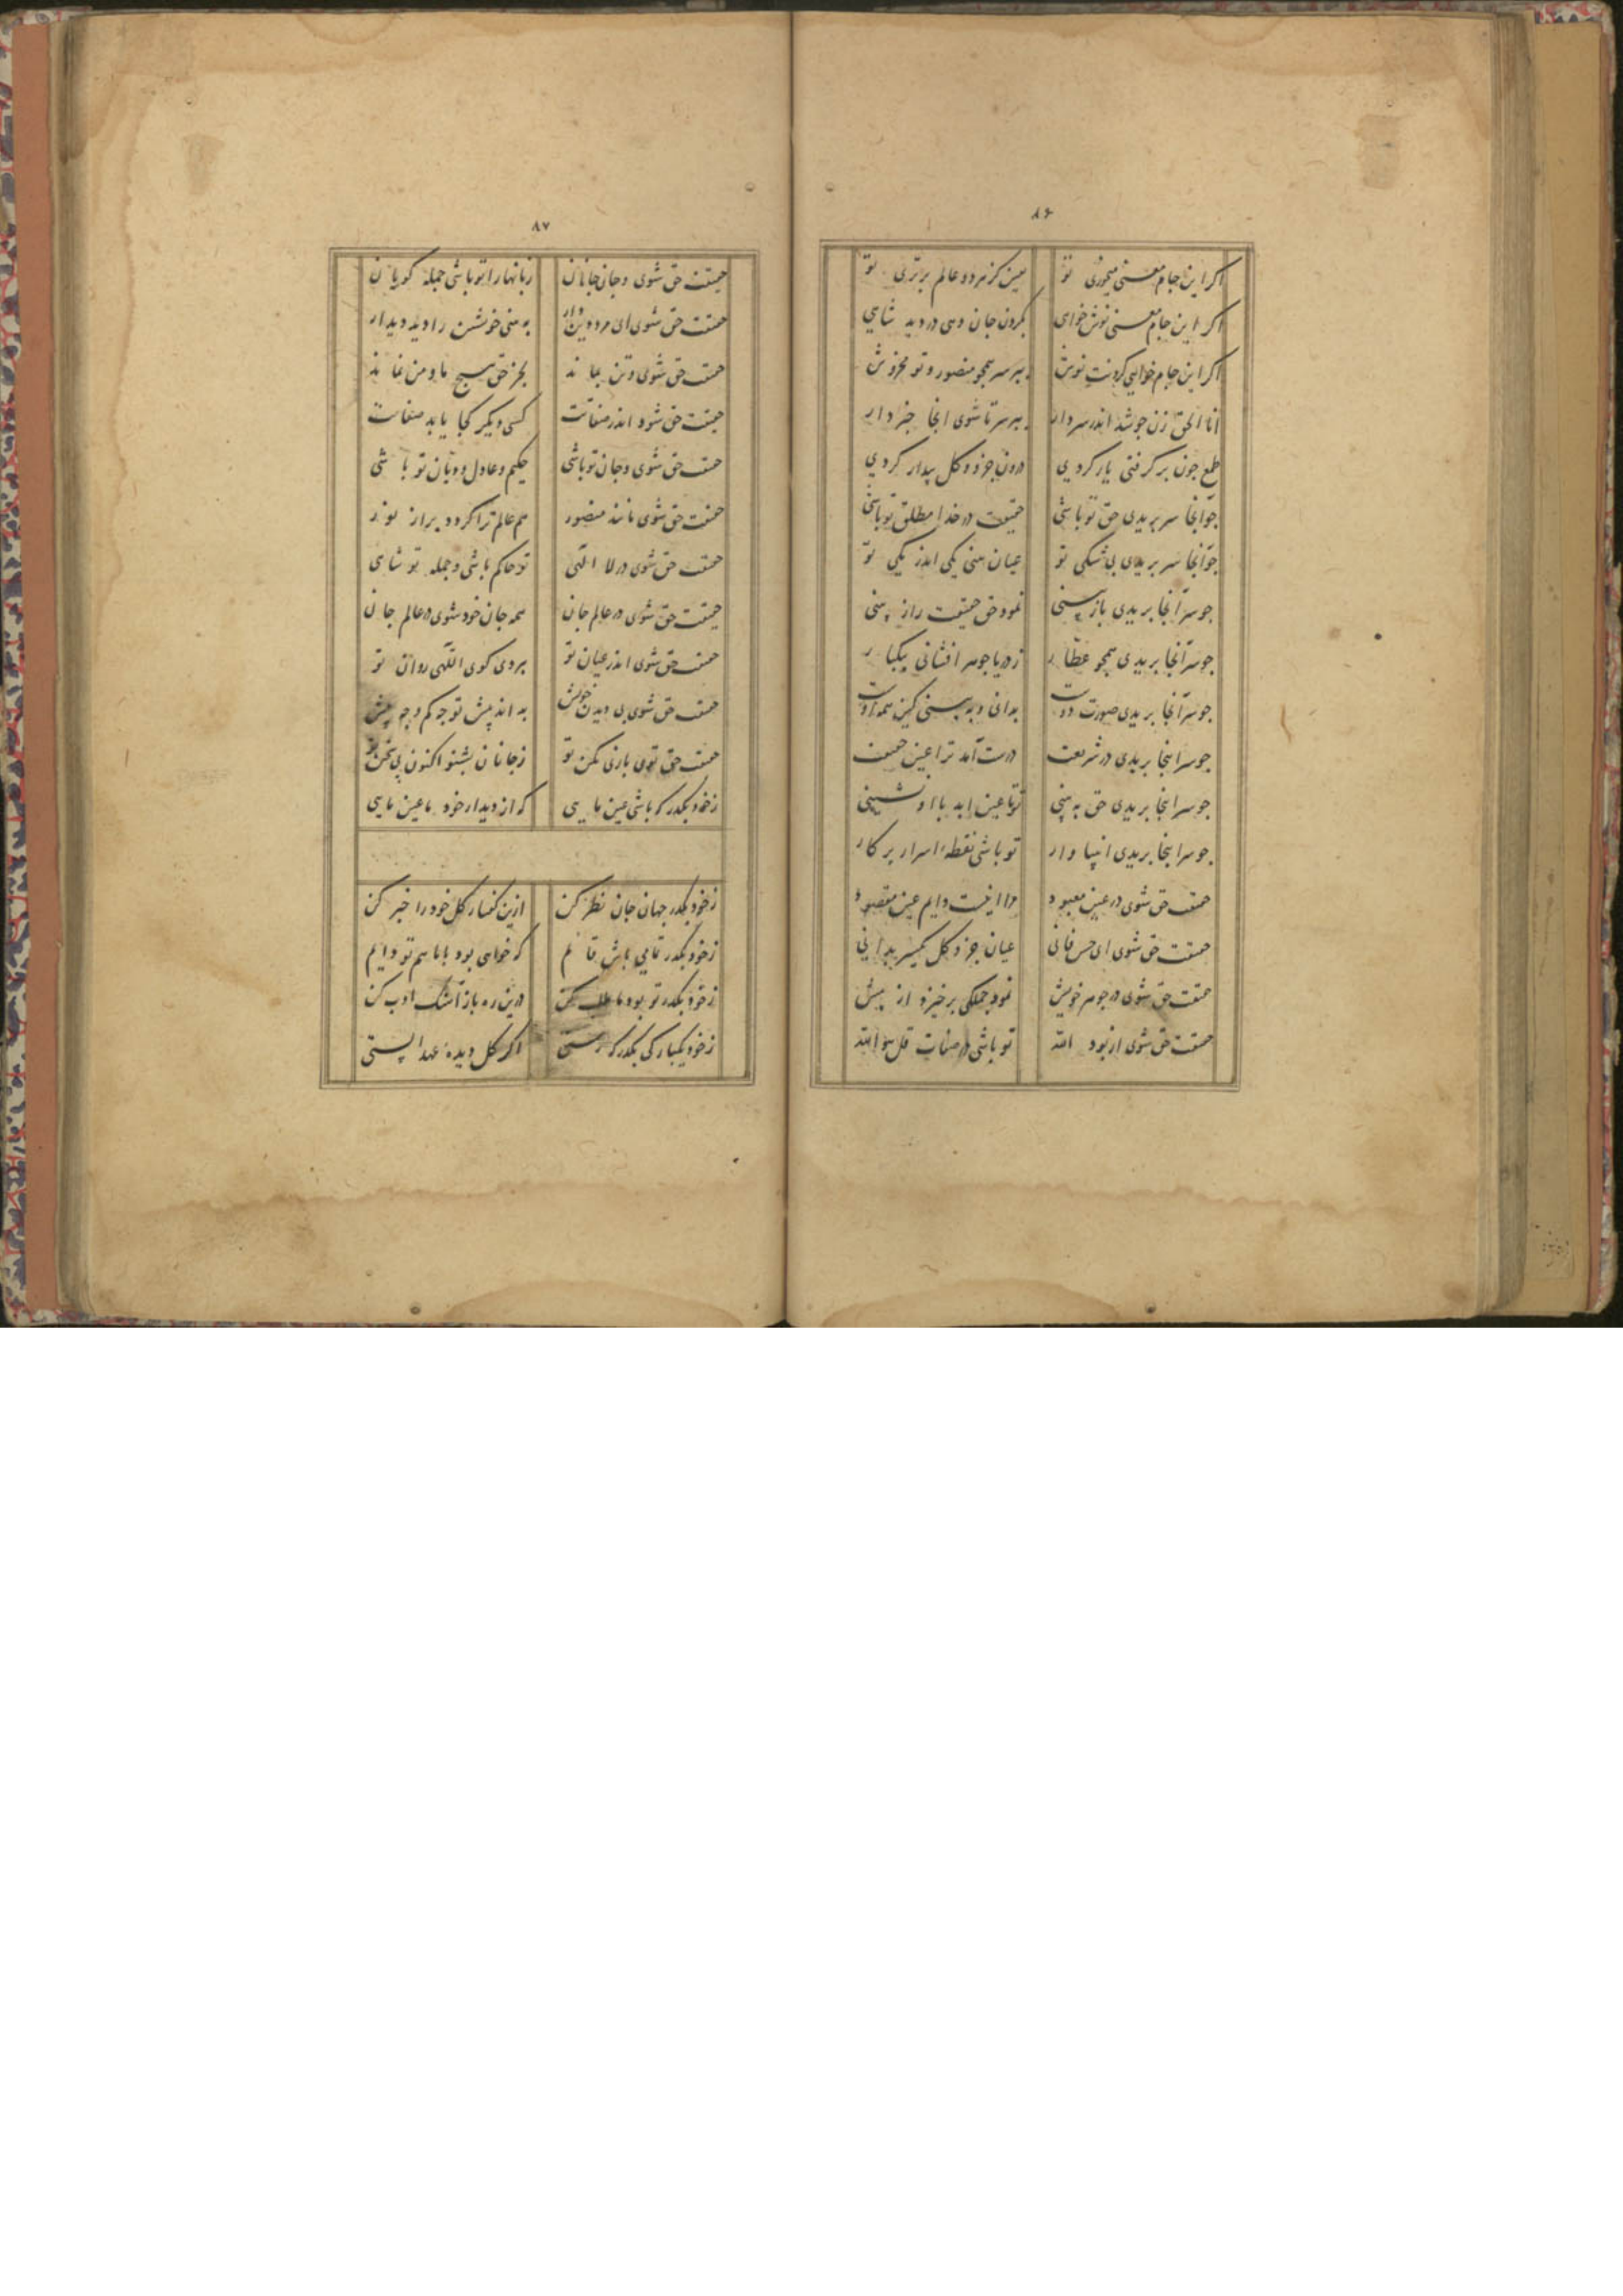 ۸۶
اکر این جام معنی میخوری تو یقین کز هر دو عالم برتری تو
اکر این جام معنی نوش خواهی بکردن جان دهی در دید شاهی
اکر این جام خواهی کردنت نوش ببر سر همچو منصور و تو مخروش
انا الحق زن جو شد اندر سر دار ببر سر تا شوی انجا خبردار
طمع جون بر کرفتی یار کردی درون جزو و کل بیدار کردی
جو آنجا سر بریدی حق تو باشی حقیقت در خدا مطلق تو باشی
جو آنجا سر بریدی بی شکی تو عیان بینی یکی اندر یکی تو
جو سر آنجا بریدی باز بینی نمود حق حقیقت راز بینی
جو سر آنجا بریدی همچو عطار ز دریا جوهر افشانی بیکبار
جو سر آنجا بریدی صورت دوست بدانی و به بینی کین همه اوست
جو سر اینجا بریدی در شریعت درست آمد ترا عین حقیقت
جو سر اینجا بریدی حق به بینی تو تا عین ابد با او نشینی
جو سر اینجا بریدی انبیا وار تو باشی نقطه اسرار پرکار
حقیقت حق شوی در عین معبود ترا اینست دایم عین مقصود
حقیقت حق شوی ای حس فانی عیان جزو و کل یکسر بدانی
حقیقت حق شوی در جوهر خویش نمود جملکی برخیزد از پیش
حقیقت حق شوی از بود الله تو باشی در صفات قل هو الله
۸۷
حقیقت حق شوی و جان جانان زبانها را تو باشی جمله کویان
حقیقت حق شوی ای مرد دین دار به بینی خویشتن را دید دیدار
حقیقت حق شوی و تن نماند بجز حق هیچ ما و من نماند
حقیقت حق شود اندر صفاتت کسی دیکر کجا یابد صفاتت
حقیقت حق شوی و جان تو باشی حکیم و عادل و دیان تو باشی
حقیقت حق شوی مانند منصور همه عالم ترا کردد پر از نور
حقیقت حق شوی در لا الهی تو حاکم باشی و جمله تو شاهی
حقیقت حق شوی در عالم جان همه جان خود شوی در عالم جان
حقیقت حق شوی اندر عیان تو بروی کوی اللهی روان تو
حقیقت حق شوی بی دیدن خویش به اندیش تو جه کم و جه بیش
حقیقت حق توی بازی مکن تو ز جانان بشنو اکنون بی سخن تو
ز خود بکذر که باشی عین مایی که از دیدار خود با عین مایی
ز خود بکذر جهان جان نظر کن ازین کفتار کل خود را خبر کن
ز خود بکذر تو باش قایم که خواهی بود با ما هم تو دایم
ز خود بکذر تو بود ما طلب کن درین ره باز ادب کن
ز خود یکبارکی بکذر که رستی اکر کل دیده عهد الستی